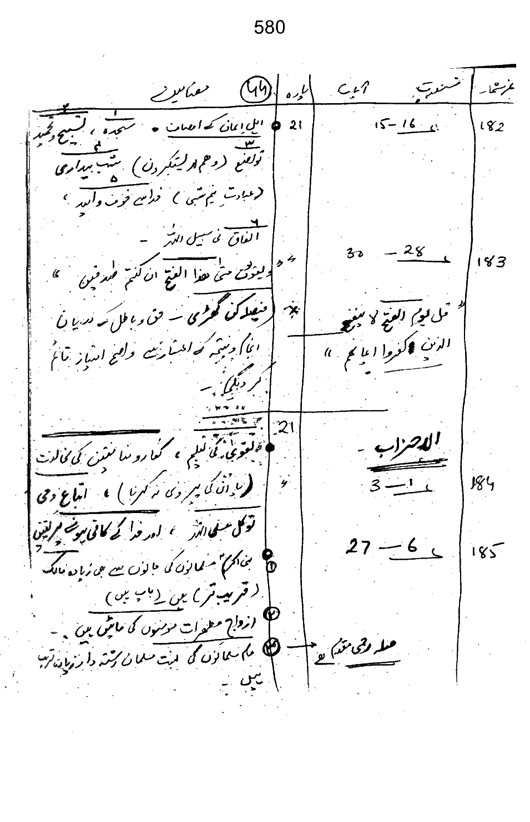 580
نمبر شمار سورت آیات پارہ ۶۶ مضامین
182 15-16 21 اہل ایمان کے اوصاف ۔ ۱ سجدہ ، ۲ تسبیح و تحمید
۳ تواضع (وھم لا یستکبرون) ۴ شب بیداری
(عبادت نیم شبی) ۵ خدا سے خوف و امید ،
۶ انفاق فی سبیل اللہ ۔
183 28 - 30 " ویقولون متیٰ ھذا الفتح ان کنتم صٰدقین "
" قل یوم الفتح لا ینفع (فیصلہ کن گھڑی ۔ حق و باطل کے درمیان
الذین کفروا ایمانھم " انجام و نتیجہ کے اعتبار سے واضح امتیاز قائم
کر دیگی) ۔
21
الاحزاب ۔ تقویٰ کی تعلیم ، کفار و منافقین کی مخالفت
184 1-3 " (یا ان کی پیروی نہ کرنا) ، اتباع وحی
توکل علی اللہ ، اور خدا کے کافی ہونے پر یقین
185 6 - 27 ① نبی اکرم مسلمانوں کی جانوں سے بھی زیادہ مالک
(قریب تر) ہیں (باپ ہیں)
② ازواج مطہرات مومنوں کی مائیں ہیں ۔
صلہ رحمی مقدم ہے ③ عام مسلمانوں کی نسبت مسلمان رشتہ دار زیادہ قریب
ہیں ۔